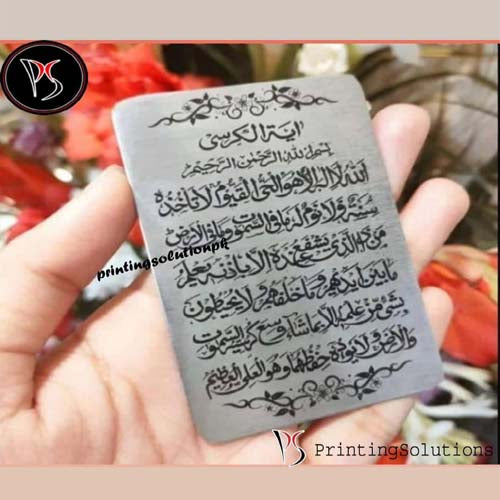 PS
آية الكرسي
بسم الله الرحمن الرحيم
الله لا اله الا هو الحي القيوم لا تأخذه
سنة ولا نوم له ما في السموت وما في الارض
من ذا الذي يشفع عنده الا باذنه يعلم
ما بين أيديهم وما خلفهم ولا يحيطون
بشئ من علمه الا بما شاء وسع كرسيه السموت
والارض ولا يؤده حفظهما وهو العلي العظيم
printingsolutionpk
PS PrintingSolutions